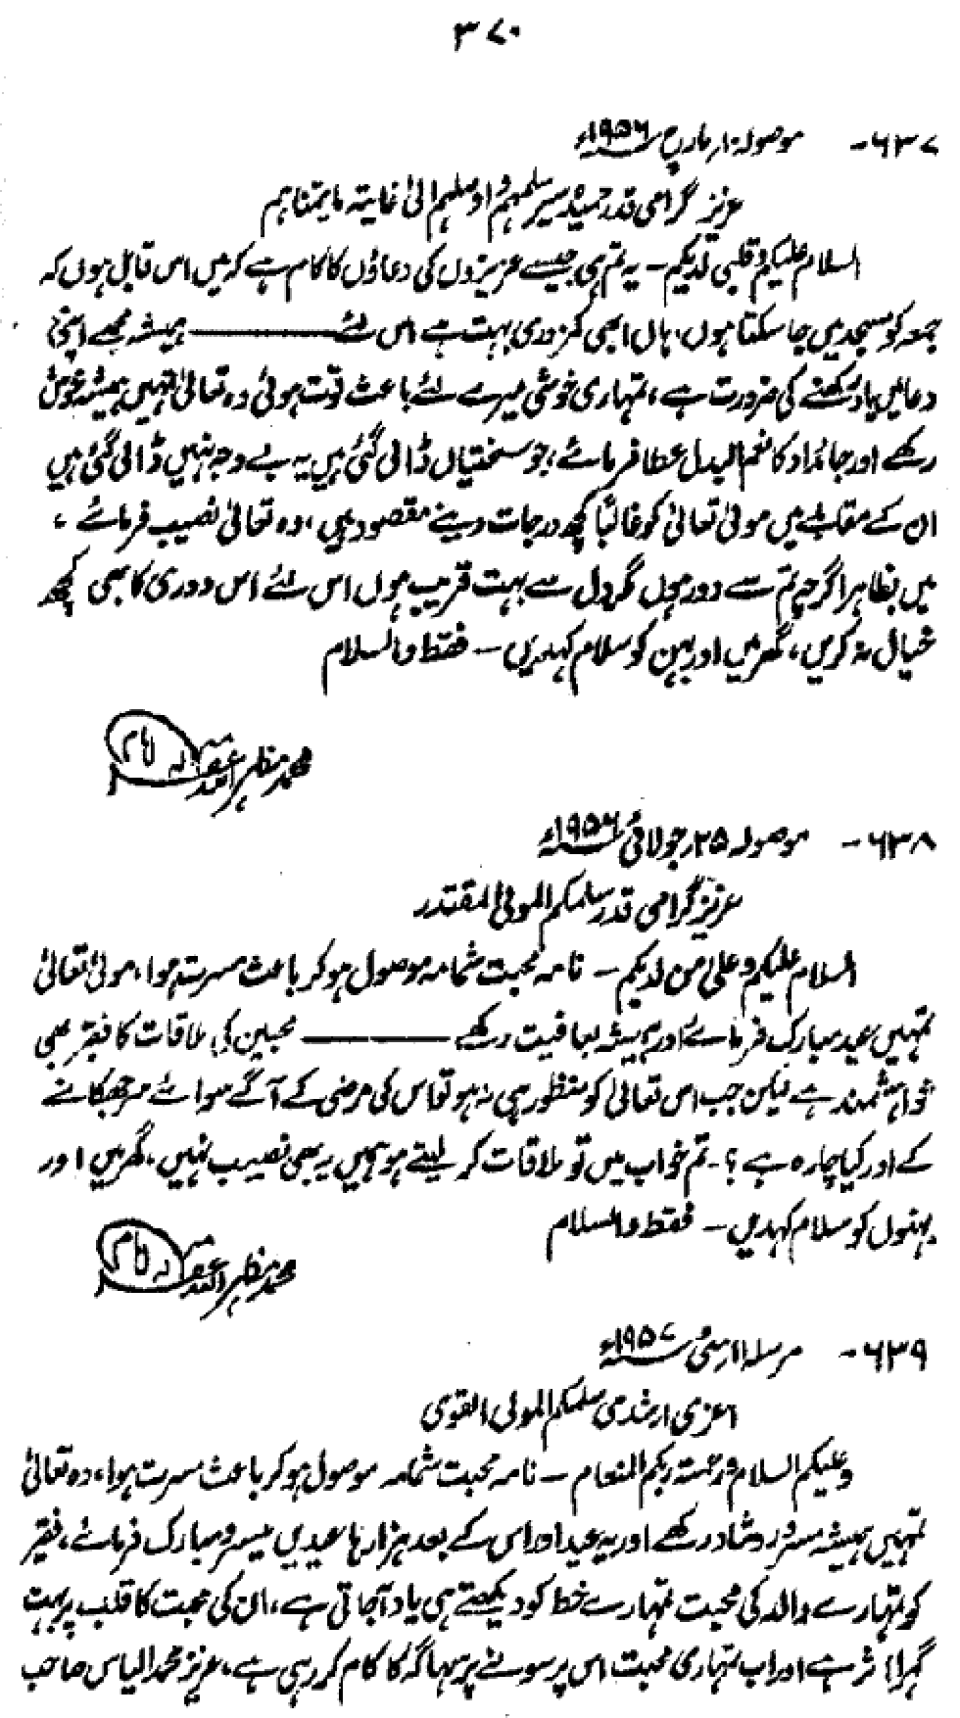 ۳۷۰
۶۳۷- موصولہ ۱۰ر مارچ ۱۹۵۶ء
عزیز گرامی قدر حمیدہ سیر سلمہم و اوصلہم الیٰ غایتہ مایتمناہم
السلام علیکم و قلبی لدیکم ـ یہ تم ہی جیسے عزیزوں کی دعاؤں کا کام ہے کہ میں اس قابل ہوں کہ
جمعہ کو مسجد میں جا سکتا ہوں، ہاں ابھی کمزوری بہت ہے اس لئے ــــــــــ ہمیشہ مجھے اپنی
دعا میں یاد رکھنے کی ضرورت ہے، تمہاری خوشی میرے لئے باعث قوت ہوئی وہ تعالیٰ تمہیں ہمیشہ خوش
رکھے اور جائداد کا نعم البدل عطا فرمائے، جو سختیاں ڈالی گئی ہیں یہ بے وجہ نہیں ڈالی گئی ہیں
ان کے مقابلے میں مولیٰ تعالیٰ کو غالباً کچھ درجات دینے مقصود ہیں، وہ تعالیٰ نصیب فرمائے ،
میں بظاہر اگرچہ تم سے دور ہوں مگر دل سے بہت قریب ہوں اس لئے اس دوری کا بھی کچھ
خیال نہ کریں، گھر میں اور بہن کو سلام کہدیں ـ فقط والسلام
محمد مظہر اللہ غفرلہ امام
۶۳۸- موصولہ ۲۵ر جولائی ۱۹۵۶ء
عزیز گرامی قدر سلمکم المولیٰ المقتدر
السلام علیکم و علیٰ من لدیکم ـ نامہ محبت شمامہ موصول ہو کر باعث مسرت ہوا، مولیٰ تعالیٰ
تمہیں عید مبارک فرمائے اور ہمیشہ بعافیت رکھے ــــــــــ محبین کی ملاقات کا فقیر بھی
خواہشمند ہے لیکن جب اس تعالیٰ کو منظور ہی نہ ہو تو اس کی مرضی کے آگے سوائے سر جھکانے
کے اور کیا چارہ ہے ؟ ـ تم خواب میں تو ملاقات کر لیتے ہو ہمیں یہ بھی نصیب نہیں، گھر میں اور
بہنوں کو سلام کہدیں ـ فقط والسلام
محمد مظہر اللہ غفرلہ امام
۶۳۹- مرسلہ ۱۱ر مئی ۱۹۵۷ء
اعزی ارشدی سلمکم المولی القوی
وعلیکم السلام و رحمتہ ربکم المنعام ـ نامہ محبت شمامہ موصول ہو کر باعث مسرت ہوا، وہ تعالیٰ
تمہیں ہمیشہ مسرور و شاد رکھے اور یہ عید اور اس کے بعد ہزارہا عیدیں میسر و مبارک فرمائے، فقیر
کو تمہارے والد کی محبت تمہارے خط کو دیکھتے ہی یاد آجاتی ہے، ان کی محبت کا قلب پر بہت
گہرا اثر ہے اور اب تمہاری محبت اس پر سونے پر سہاگہ کا کام کر رہی ہے، عزیز محمد الیاس صاحب